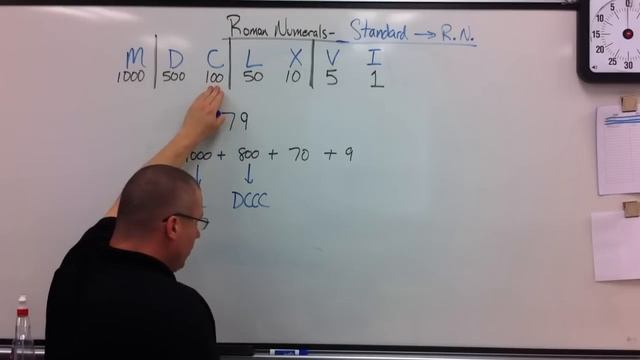 Roman Numerals- Standard → R.N.
M D C L X V I
1000 500 100 50 10 5 1
79
1000 + 800 + 70 + 9
DCCC